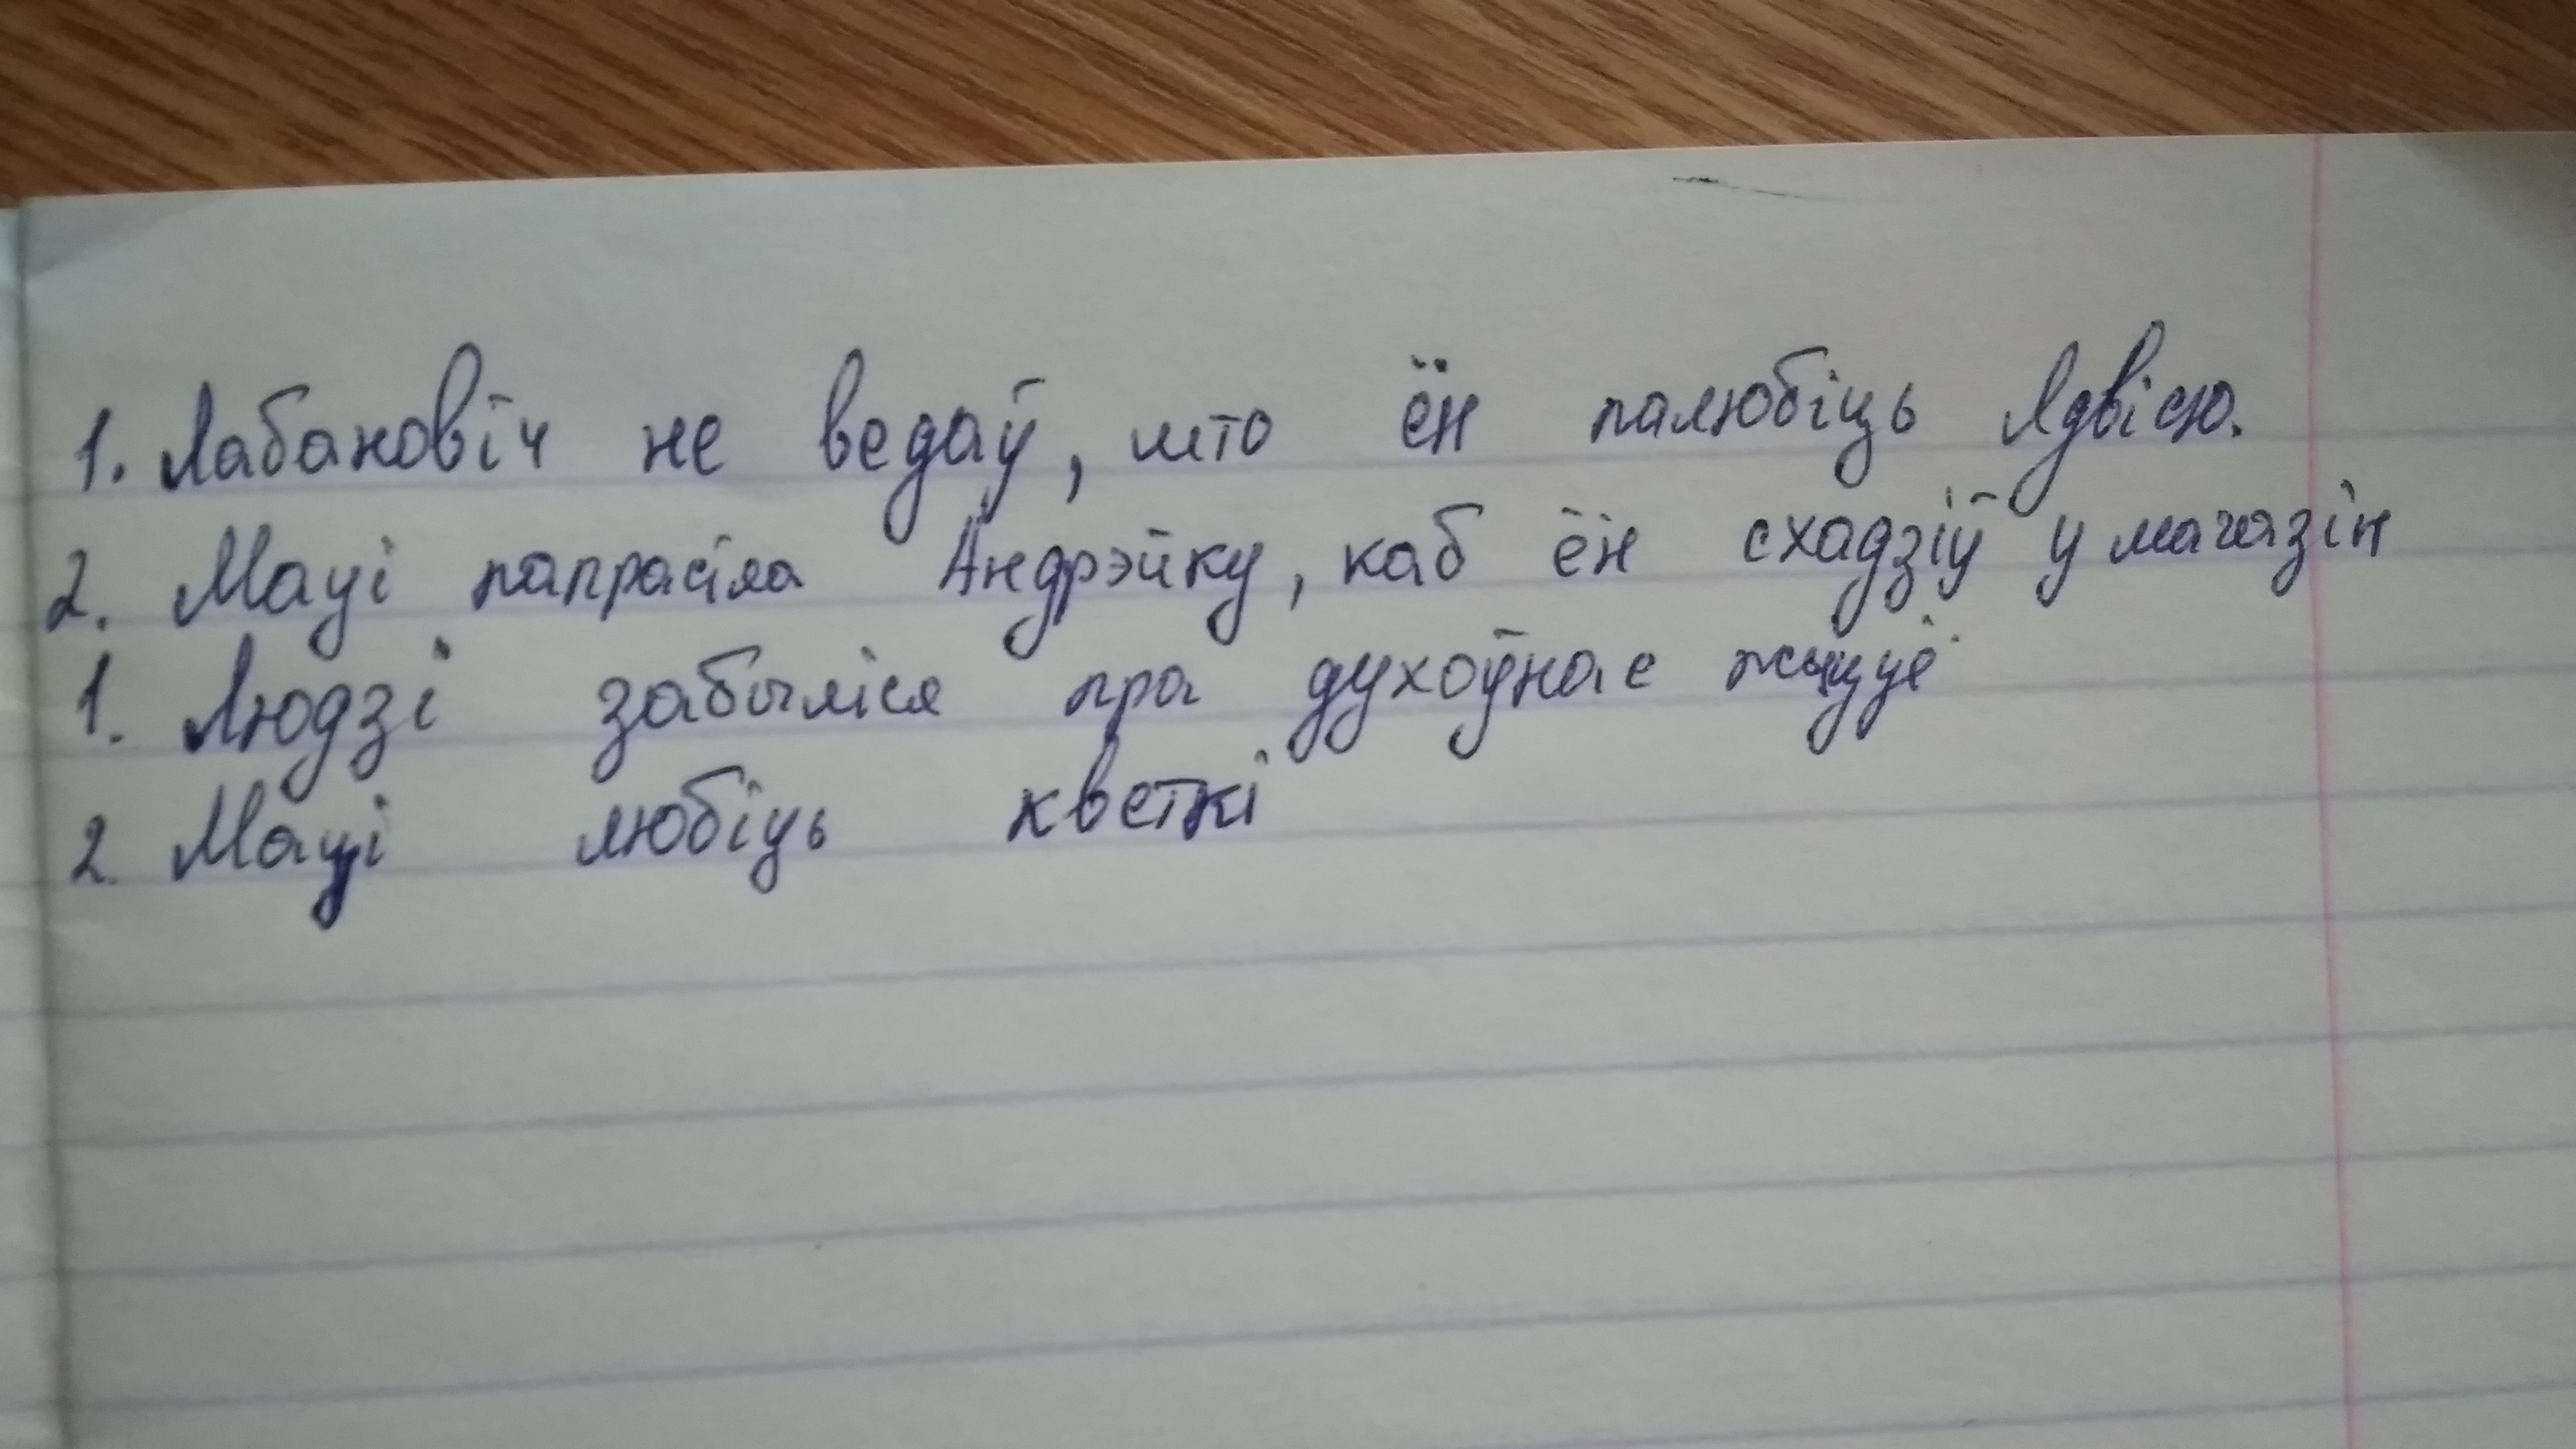 1. Лабановіч не ведаў, што ён палюбіць Ядвісю.
2. Маці папрасіла Андрэйку, каб ён схадзіў у магазін
1. Людзі забыліся пра духоўнае жыццё
2. Маці любіць кветкі